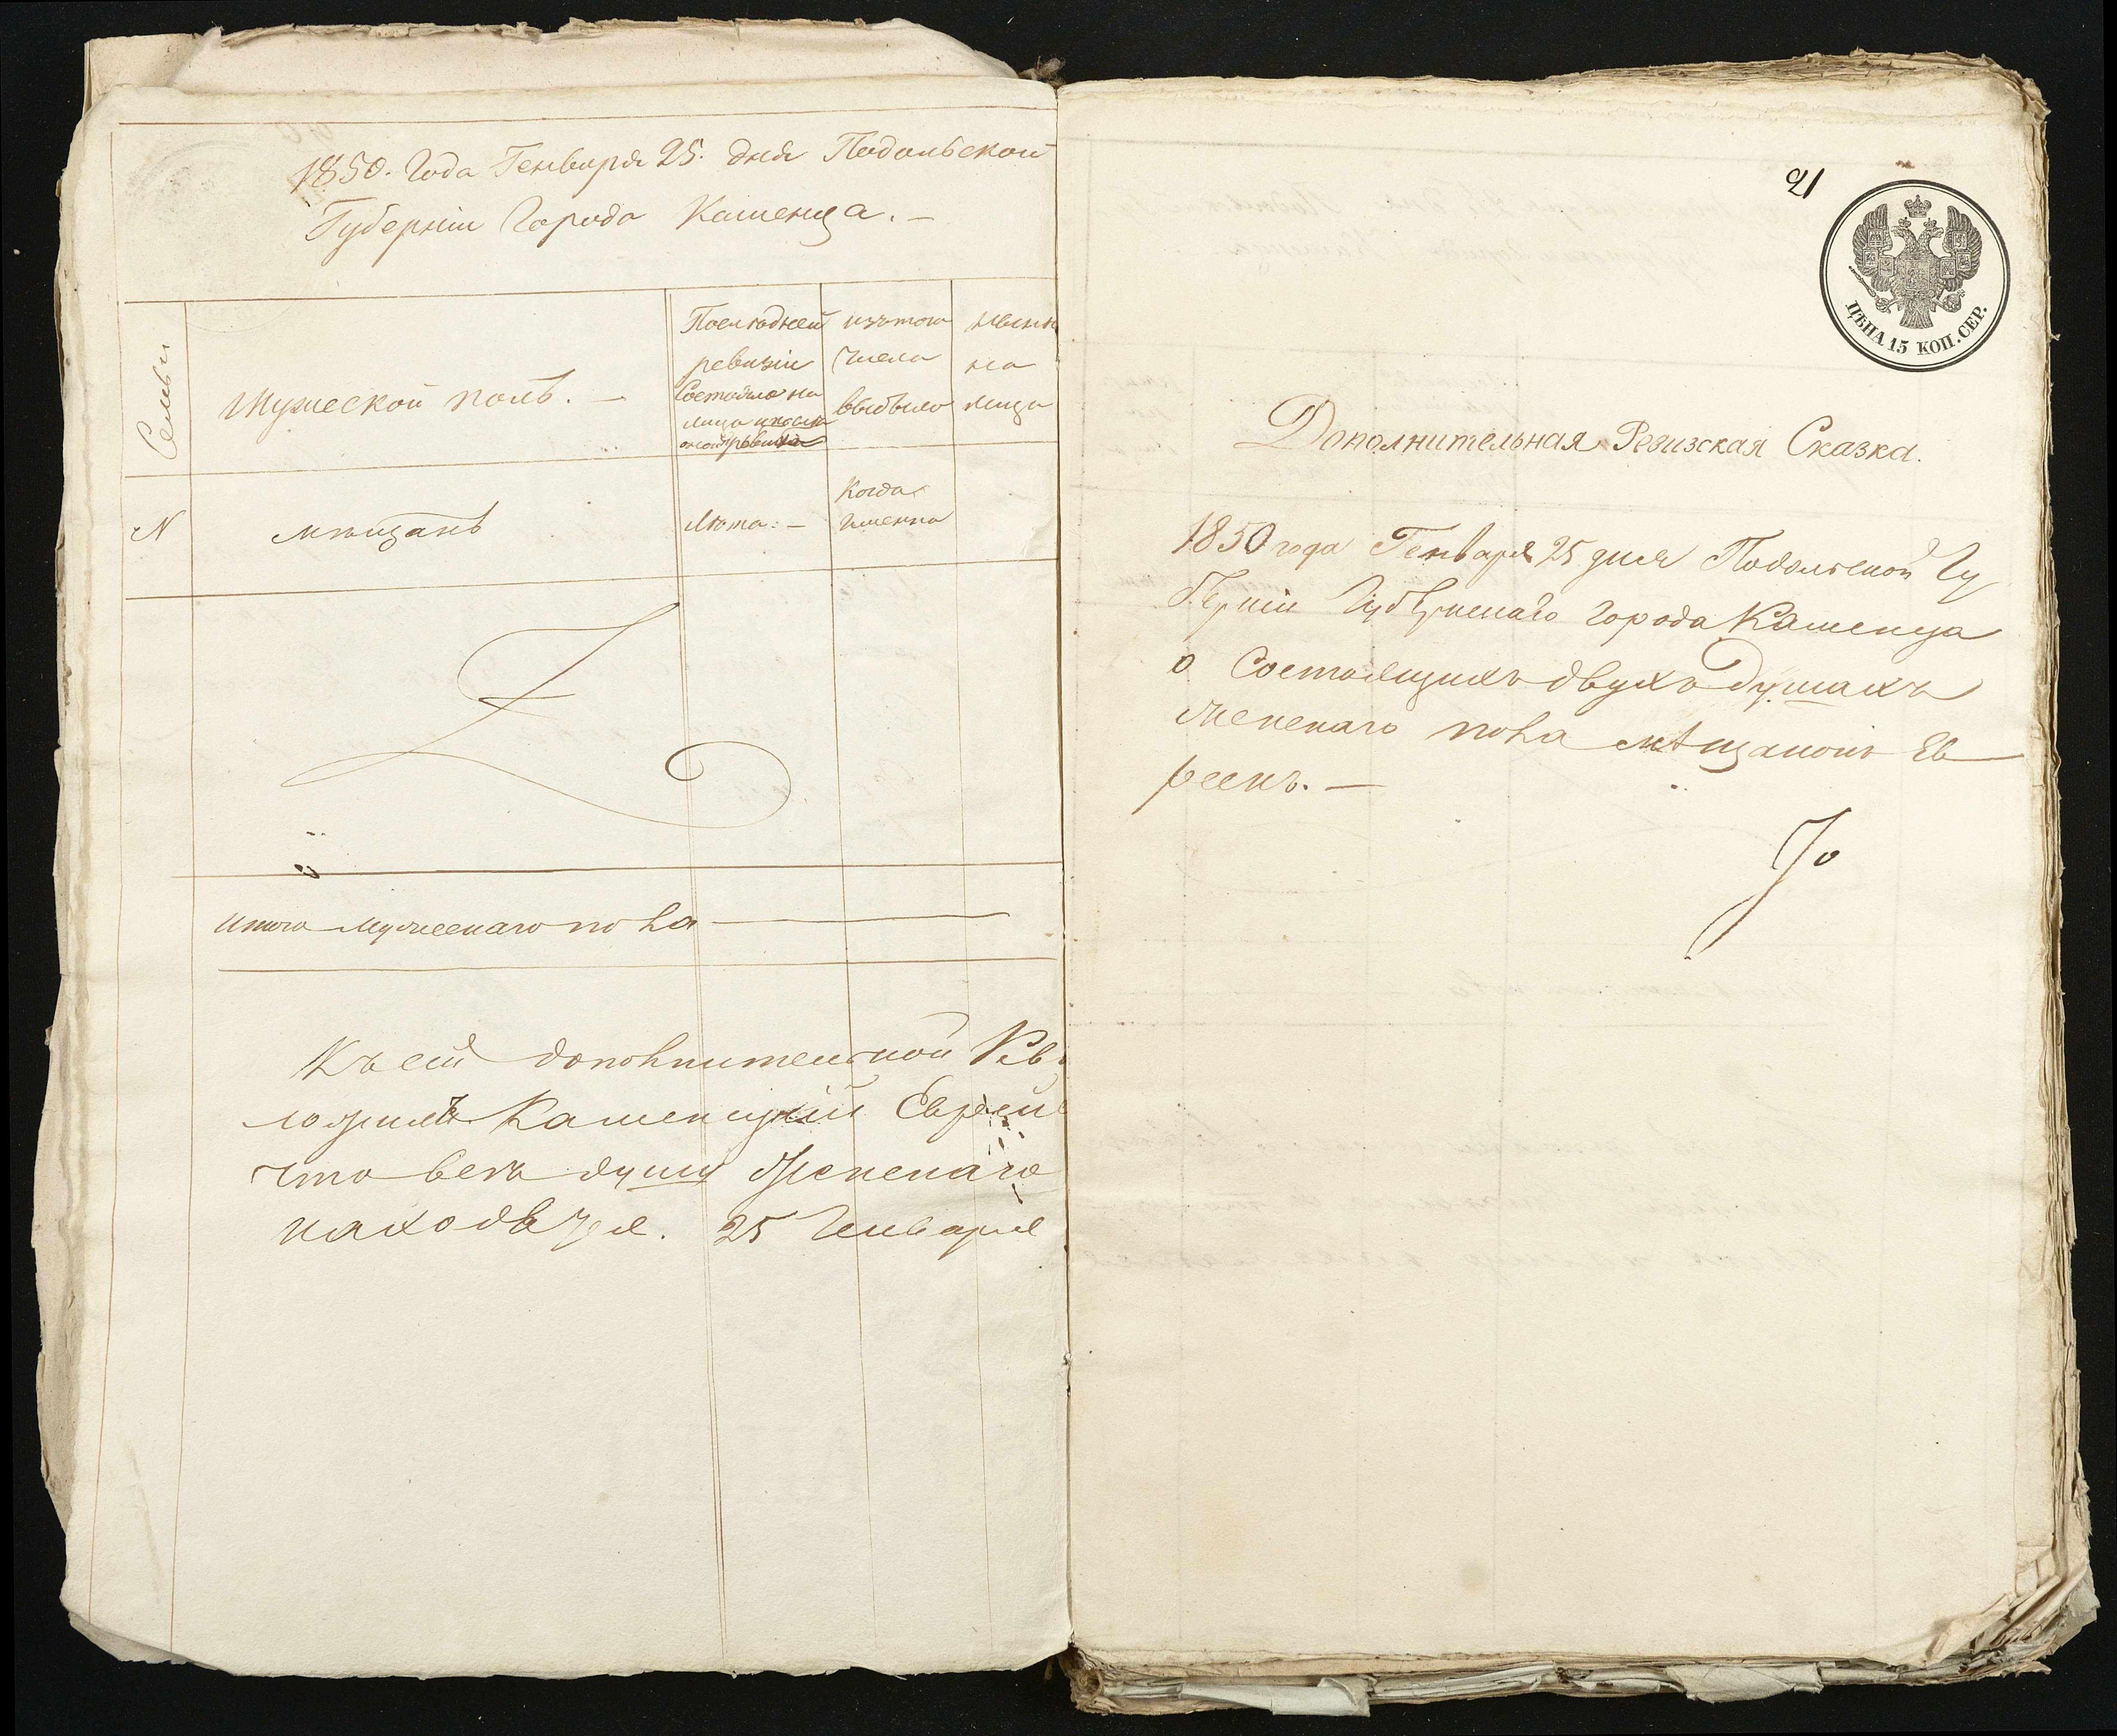 1850. Года Генваря 25. дня Подольской
Губернiи Города Каменца. —
Семьи
Мужеской полъ. —
Последней
ревизiи
Состояло на
лицо и после
оной прибыло
изъ того
числа
выбыло
ныне
на
лицо
N
мѣщанъ
Лѣта: —
Когда
Именно
итого Мужескаго пола
Къ сей дополнительной Рев
ложилъ Каменецкiй Еврей
что всѣ души женскаго
находятся. 25 Генваря
21
ЦѢНА 15 КОП. СЕР.
Дополнительная Ревизская Сказка.
1850 года Генваря 25 дня Подольской Гу
бернiи Губернскаго города Каменца
о Состоящихъ двухъ душахъ
женскаго пола мѣщанокъ Ев
реекъ. —